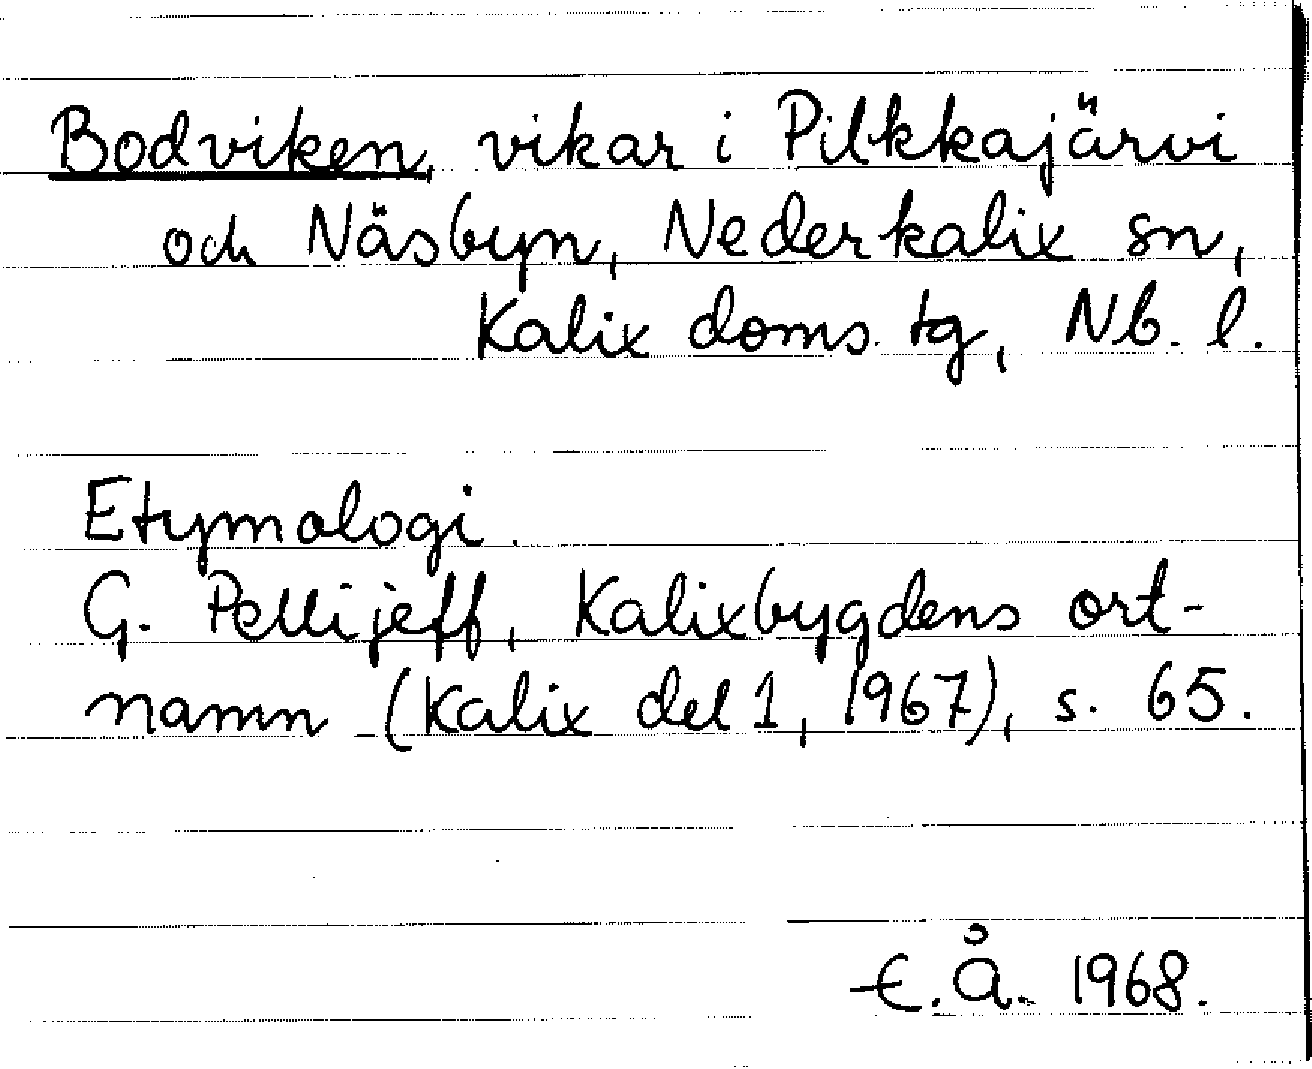 Bodviken, vikar i Pilkkajärvi
och Näsbyn, Nederkalix sn,
Kalix doms. tg, Nb. l.
Etymologi.
G. Pellijeff, Kalixbygdens ort-
namn (Kalix del 1, 1967), s. 65.
E. Å. 1968.